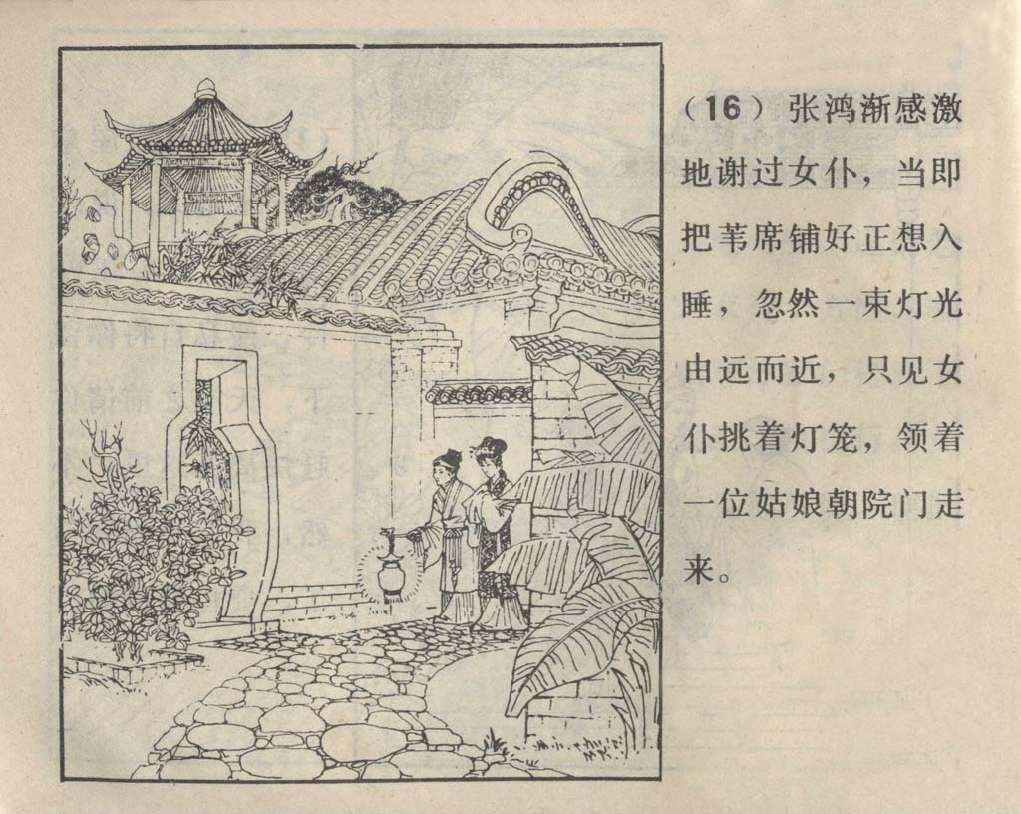 （16）张鸿渐感激
地谢过女仆，当即
把苇席铺好正想入
睡，忽然一束灯光
由远而近，只见女
仆挑着灯笼，领着
一位姑娘朝院门走
来。